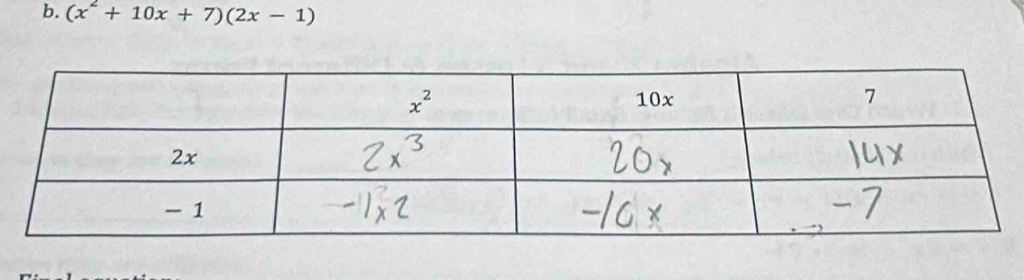 b. (x² + 10x + 7)(2x − 1)
x² 10x 7
2x 2x³ 20x 14x
− 1 −10x −7